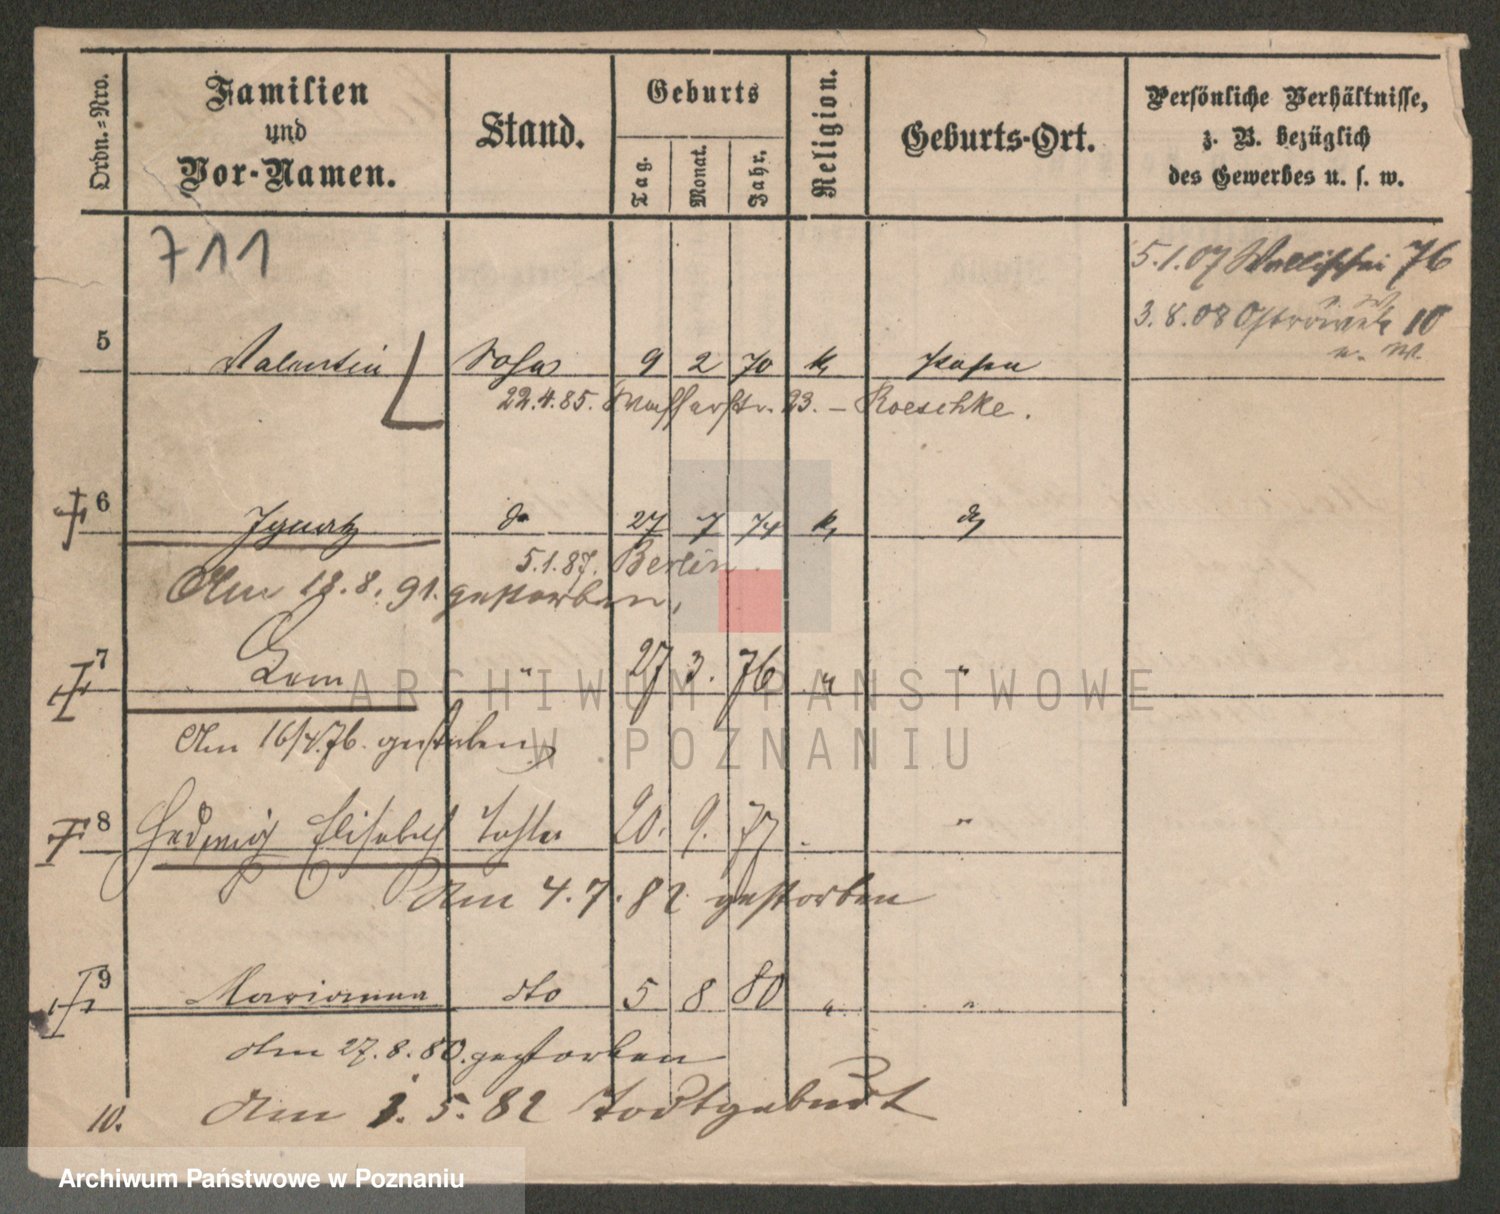 Ordn.=Nro.
Familien
und
Vor-Namen.
Stand.
Geburts
Tag.
Monat.
Jahr.
Religion.
Geburts-Ort.
Persönliche Verhältnisse,
z. B. bezüglich
des Gewerbes u. s. w.
711
5.1.07 Wallischei 76
3.8.08 Ostrowek 10
u. W.
5 Valentin Sohn 9 2 70 k, Posen
22.4.85. Wasserstr. 23. – Roeschke.
6 Ignatz do 27 7 74 k, do
5.1.87. Berlin
Am 18.8.91. gestorben,
7 27 3. 76 " "
Am 16/4.76. gestorben
8 Hedwig Elisabeth Tochter 20. 9. 77 "
Am 4.7.82 gestorben
9 Marianna dto 5 8 80 " "
Am 27.8.80. gestorben
10. Am 1.5.82 Todtgeburt
ARCHIWUM PAŃSTWOWE
W POZNANIU
Archiwum Państwowe w Poznaniu